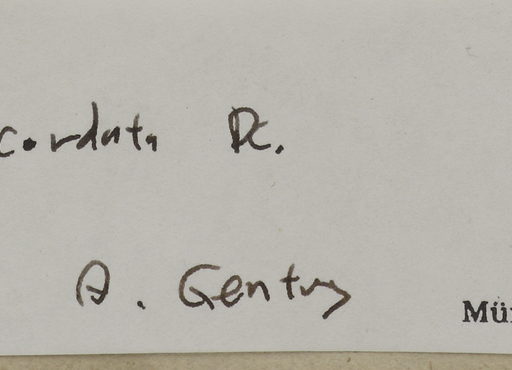 cordata DC.
A. Gentry
Mün